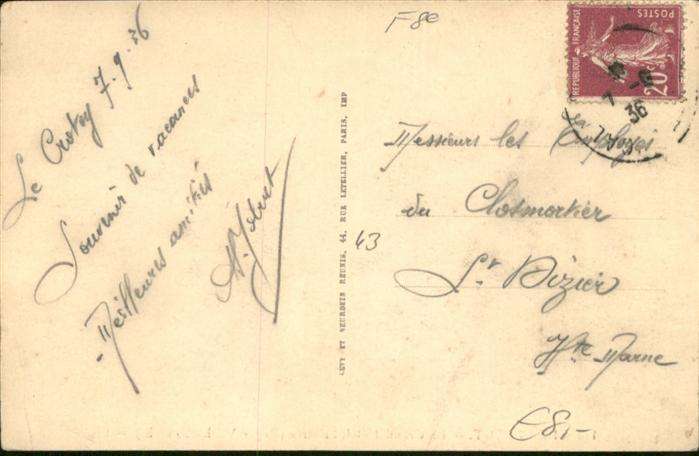 Le Crotoy 7.9.36
Souvenir de vacances
Meilleures amitiés
LEVY ET NEURDEIN REUNIS, 44, RUE LETELLIER, PARIS, IMP
F 8e
43
REPUBLIQUE FRANÇAISE
POSTES
20c
7 -9
36
Messieurs les Employés
du Closmortier
St Dizier
Hte Marne
€8,-